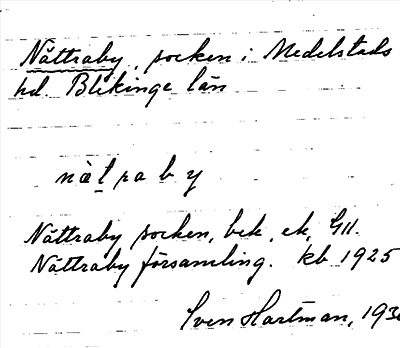 Nättraby, socken i Medelstads
hd. Blekinge län
nätraby
Nättraby socken, bek, ek, GII.
Nättraby församling. kb 1925
Sven Hartman, 193